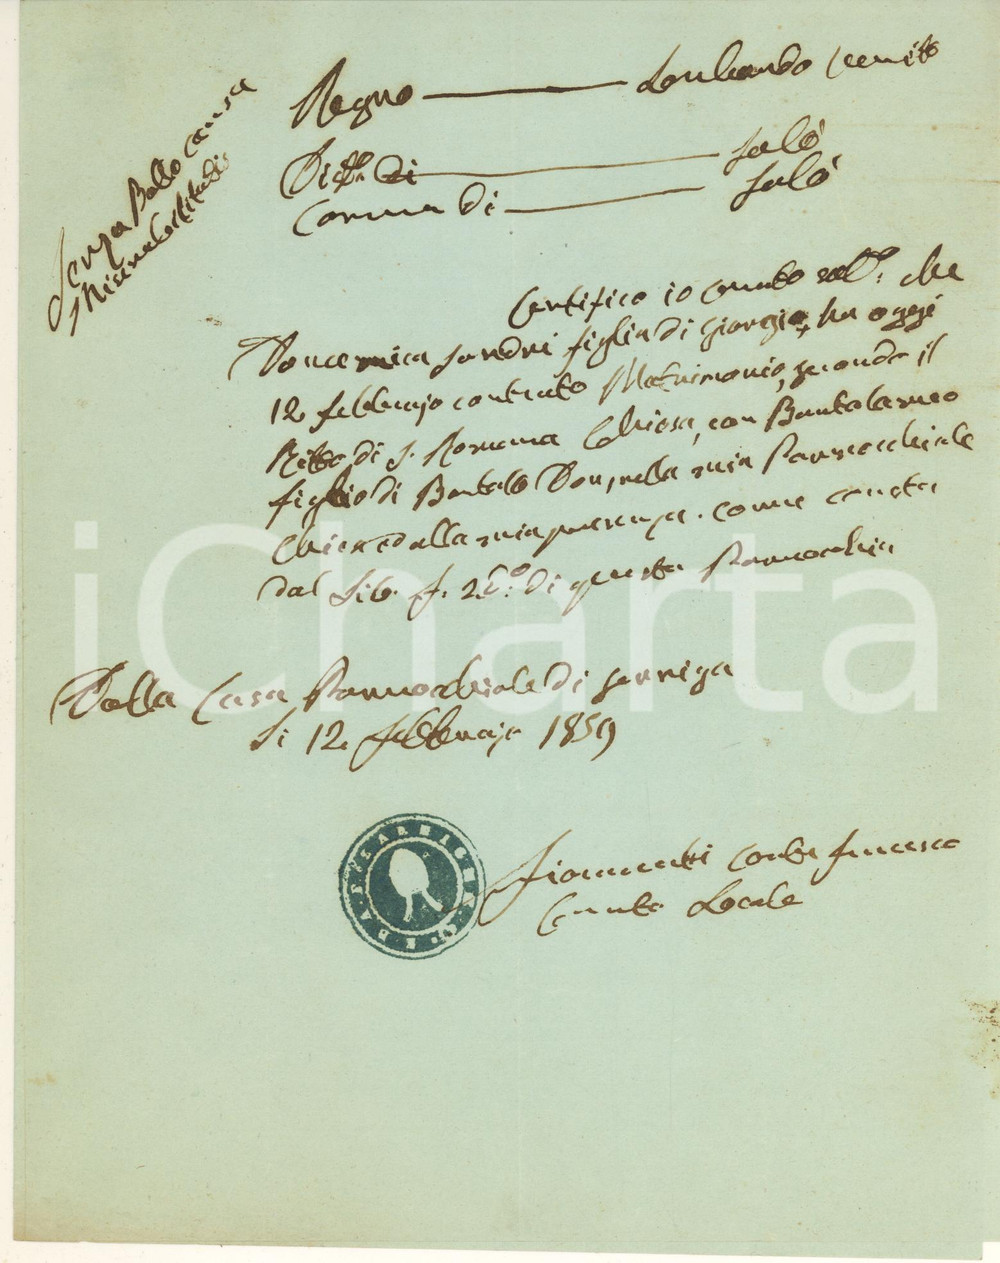 Senza Bollo causa
Miserabilitudis
Regno — Lombardo Veneto
Dist. di — Salò
Comune di — Salò
Certifico io Curato sott.º che
Domenica Sandri figlia di Giorgio, ha oggi
12 febbrajo contrato Matrimonio, secondo il
Ritto di S. Romana Chiesa, con Bortolameo
figlio di Bortolo Don, nella mia Parrocchiale
Chiesa dalla mia presenza. come consta
dal Lib. f. di questa Parrocchia
Dalla Casa Parrochiale di Serniga
li 12 febbrajo 1859
Conte Francesco
Curato Locale
iCharta